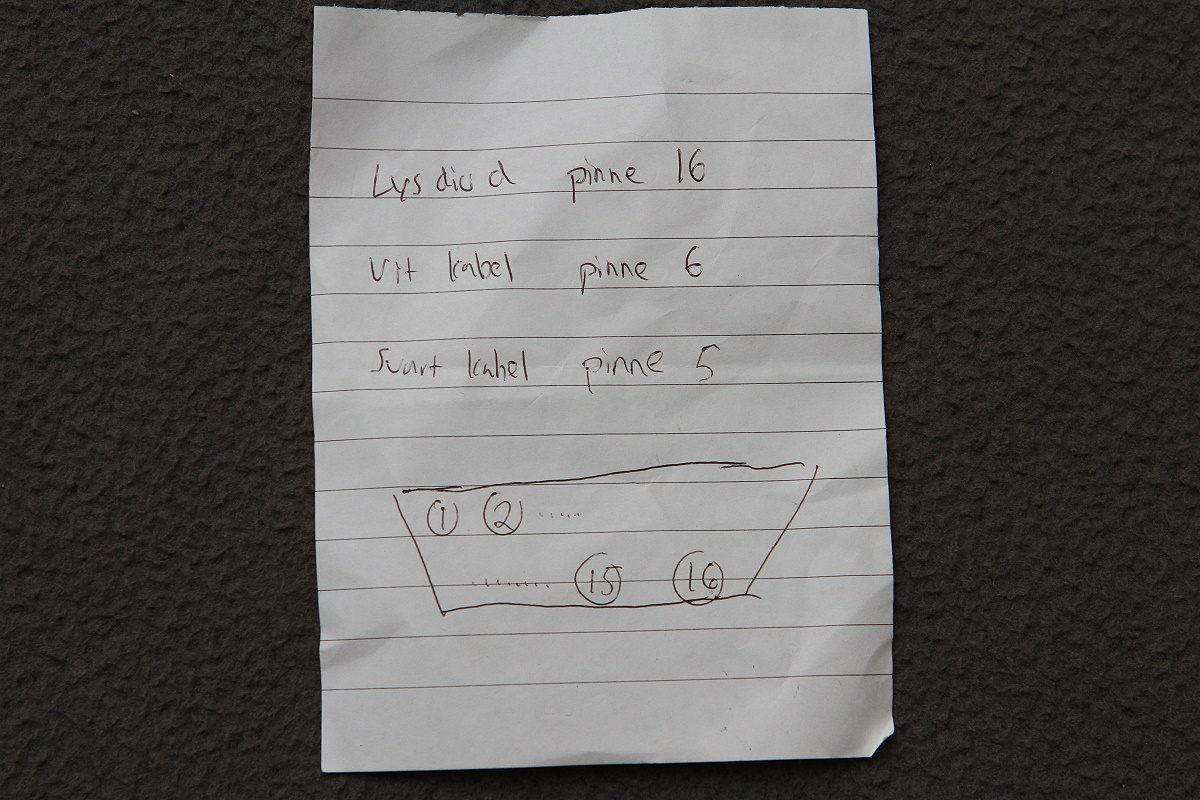 Lysdiod pinne 16
Vit kabel pinne 6
Svart kabel pinne 5
1 2 .....
........ 15 16